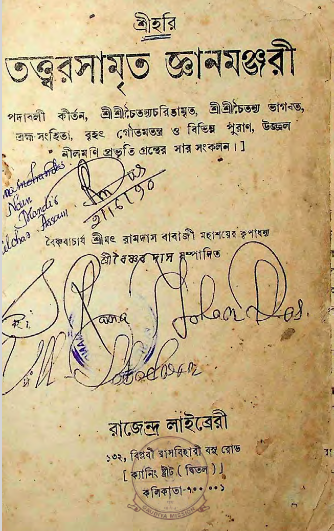 শ্রীহরি
তত্ত্বরসামৃত জ্ঞানমঞ্জরী
পদাবলী কীর্তন, শ্রীশ্রীচৈতন্যচরিতামৃত, শ্রীশ্রীচৈতন্য ভাগবত,
ব্রহ্ম-সংহিতা, বৃহৎ গৌতমতন্ত্র ও বিভিন্ন পুরাণ, উজ্জ্বল
নীলমণি প্রভৃতি গ্রন্থের সার সংকলন। ]
Silchar Assam
বৈষ্ণবাচার্য শ্রীমৎ রামদাস বাবাজী মহাশয়ের কৃপাধন্য
শ্রীবৈষ্ণব দাস সম্পাদিত
Sri Rama Mohan Das.
রাজেন্দ্র লাইব্রেরী
১৩২, বিপ্লবী রাসবিহারী বসু রোড
[ ক্যানিং স্ট্রীট ( দ্বিতল ) ]
কলিকাতা-৭০০০০১